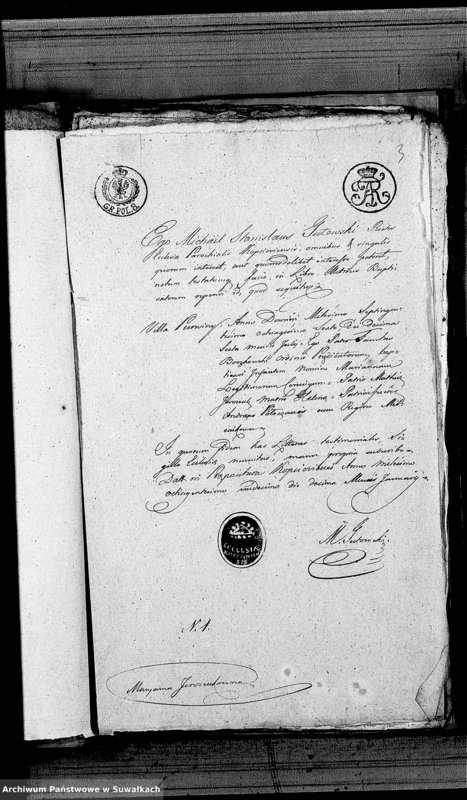 3
GR. POL. 8.
AR
Ego Michael Stanislaus Gutowski
Ecclesiae Parochialis omnibus & singulis
quorum interest, aut quomodolibet interesse poterit,
notum testatumq facio, in Libro Metrices Bapti
satorum reperiri id, quod sequitur
Villa Anno Domini Millesimo Septingen
tesimo octuagesimo Sexto Die Decima
Sexta mensis Julij. Ego Pater Faustus
Ordinis Praedicatorum, bap
tisavi Infantem Nomine Mariannam
Legitimorum Conjugum Patris Mathiae
matris Helena Patrini fuere
Andreas cum Regina
In quorum fidem has Litteras testimoniales, Si
gillo Ecclesiae munitas, manu propria subscribo
Datt in Praepositura Anno millesimo
octingentesimo undecimo die decima Mensis Januarij
M. Gutowski
ECCLESIA
N. 1.
Maryanna
Archiwum Państwowe w Suwałkach